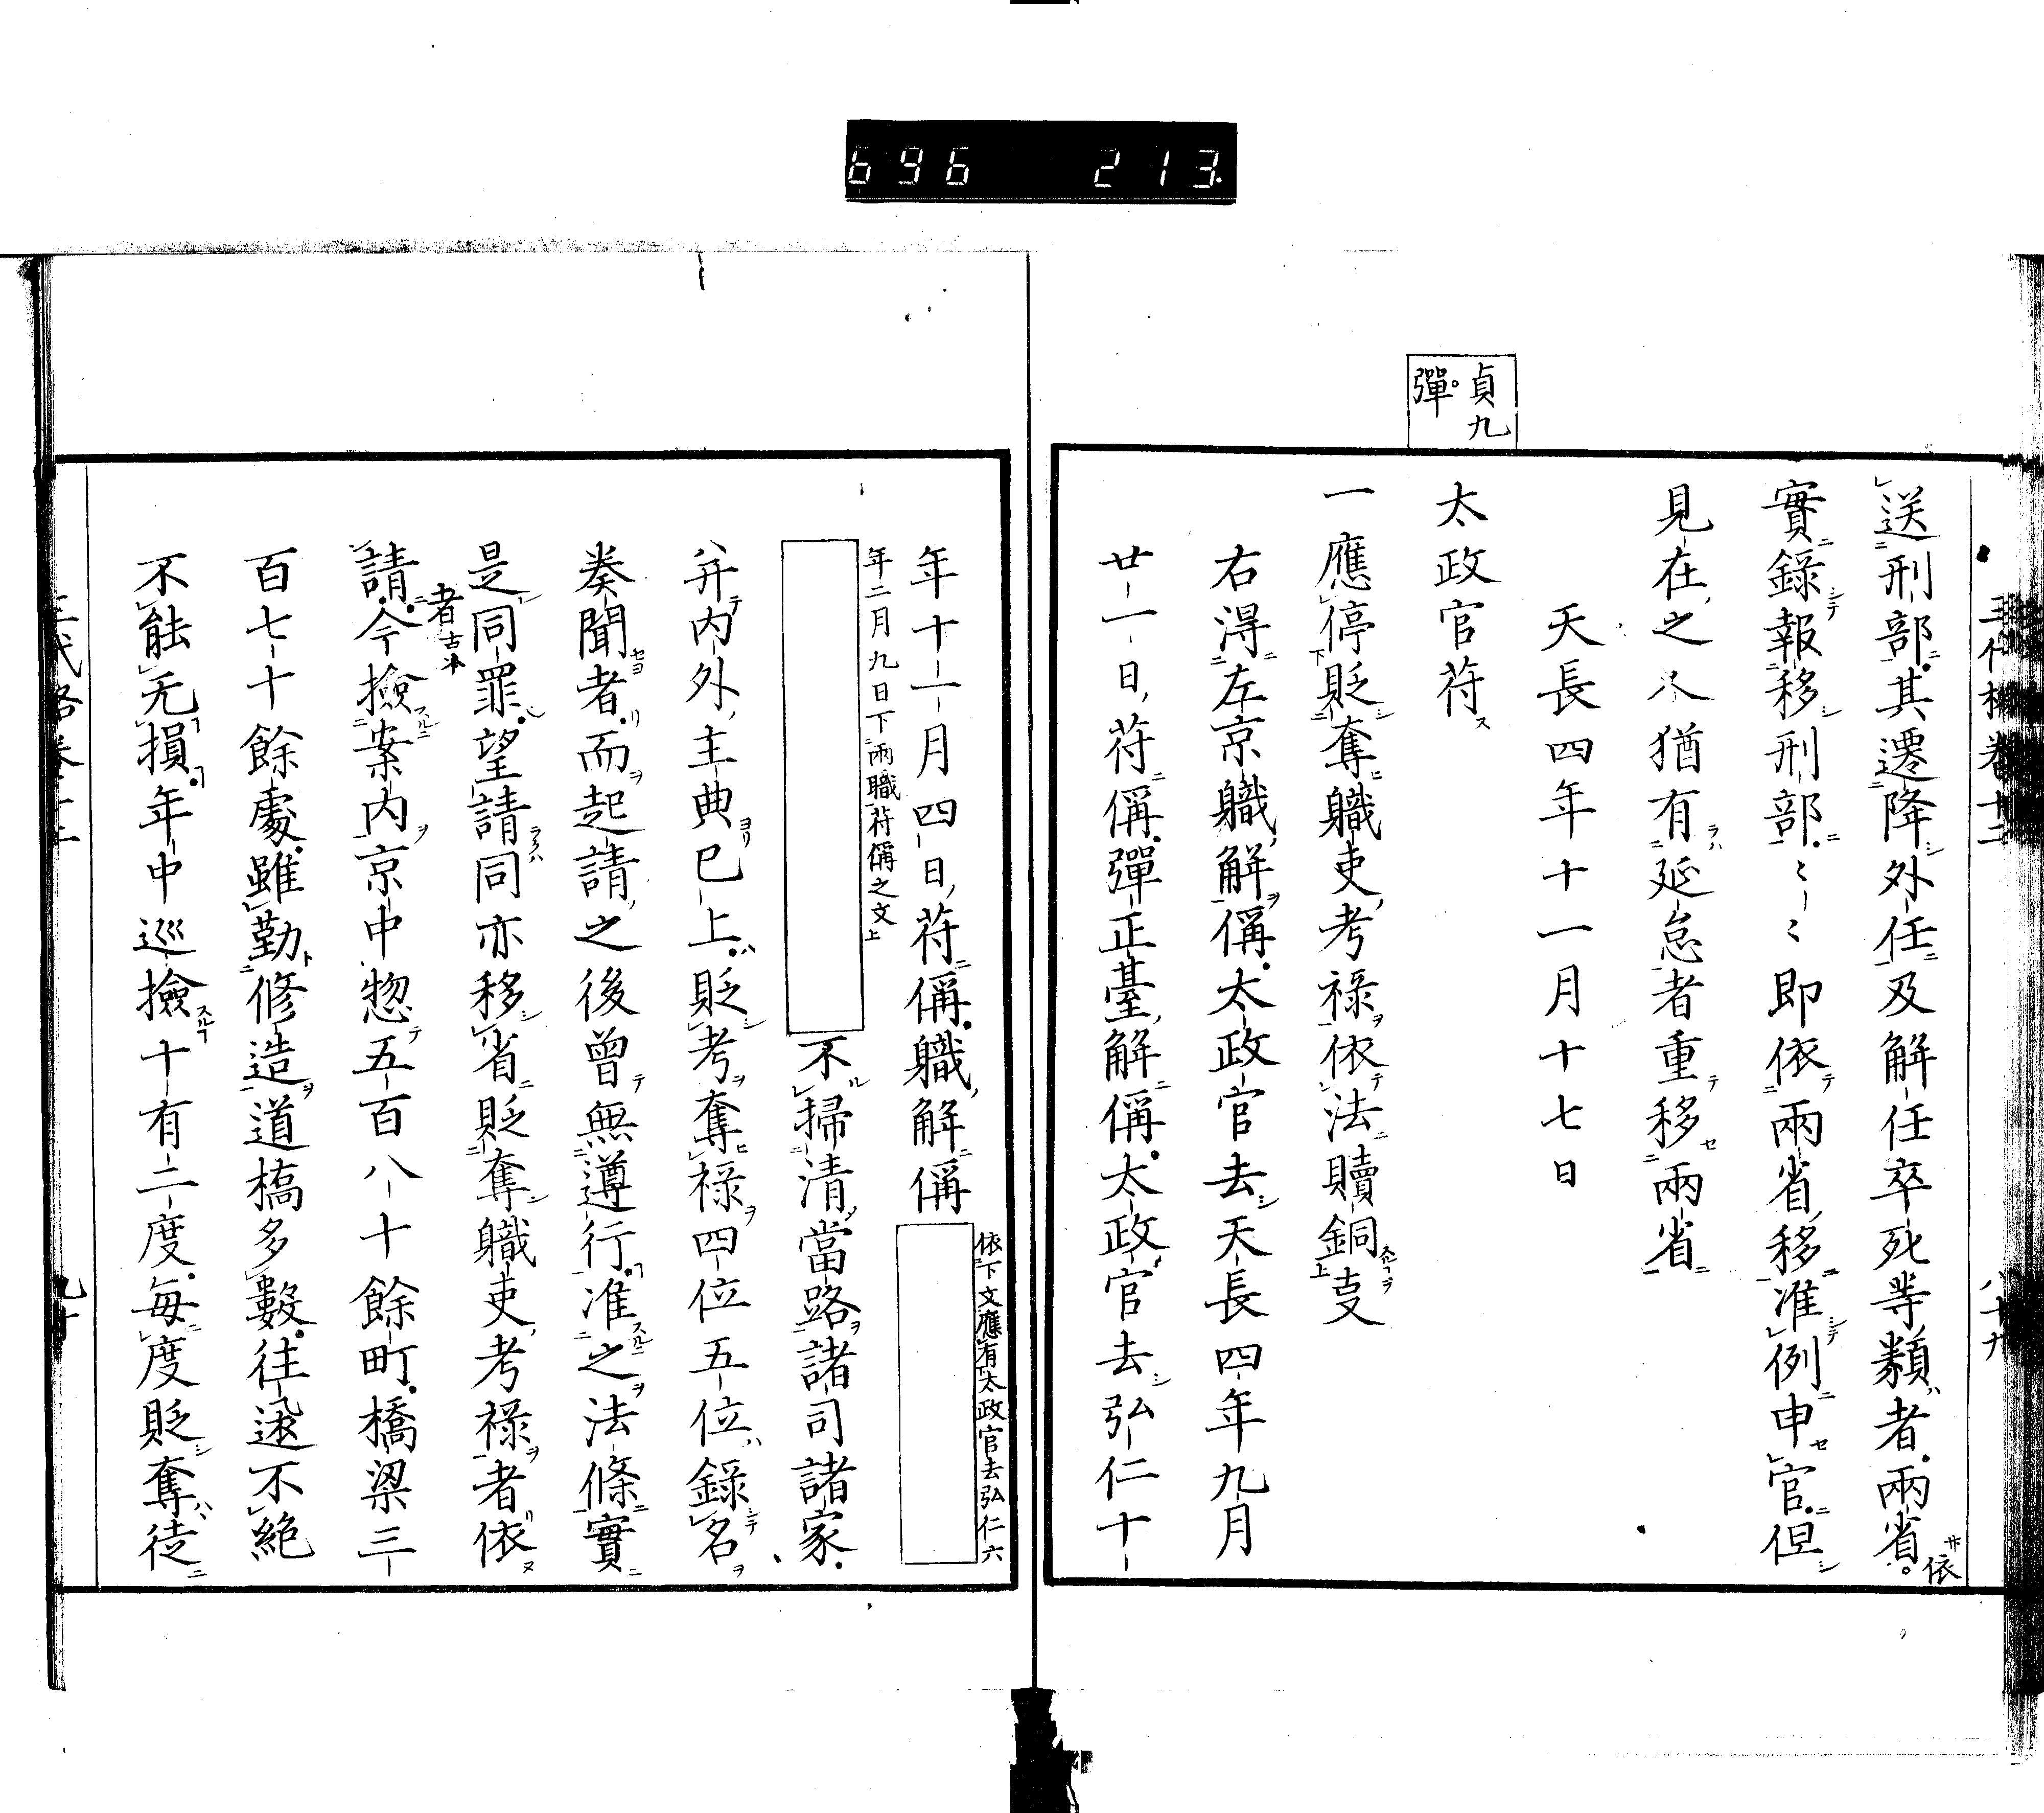 696 213
三代格卷十二 八十九
送刑部其遷降外任及解任卒死等類者兩省依
實錄報移刑部〻〻即依兩省移准例申官但
見在之人猶有延怠者重移兩省
天長四年十一月十七日
貞九
彈
太政官符
一應停貶奪職吏考祿依法贖銅事
右得左京職解偁太政官去天長四年九月
廿一日符偁彈正臺解偁太政官去弘仁十
年十一月四日符偁職解偁
依下文應有太政官去弘仁六
年二月九日下兩職符偁之文上
不掃清當路諸司諸家
并內外主典已上貶考奪祿四位五位錄名
奏聞者而起請之後曾無遵行准之法條實
是同罪望請同亦移省貶奪職吏考祿者依
請今撿案內京中惣五百八十餘町橋梁三
者古本
百七十餘處雖勤修造道橋多數往還不絕
不能无損年中巡撿十有二度每度貶奪徒
三代格卷十二 九十